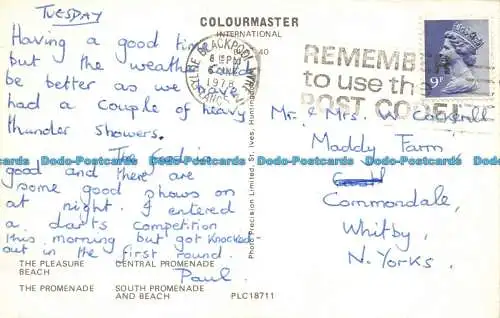 TUESDAY
Having a good time
but the weather could
be better as we have
had a couple of heavy
thunder showers.
The food is
good and there are
some good shows on
at night. I entered
a darts competition
this morning but got knocked
out in the first round.
Paul.
COLOURMASTER
INTERNATIONAL
BLACKPOOL
8 15PM
1978
LANCS
REMEMBER
to use the
POST CODE
9P
Mr. & Mrs. W. Cockerill
Maddy Farm,
Commondale,
Whitby,
N. Yorks.
Photo Precision Limited, St. Ives, Huntingdon
THE PLEASURE BEACH
CENTRAL PROMENADE
THE PROMENADE
SOUTH PROMENADE AND BEACH
PLC18711
Dodo-Postcards Dodo-Postcards Dodo-Postcards Dodo-Postcards